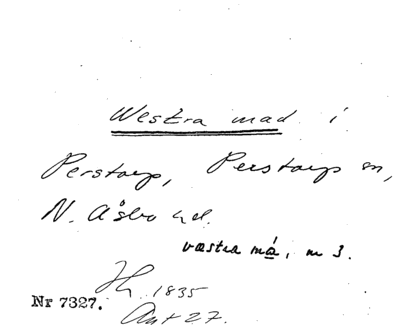 Westra mad i
Perstorp, Perstorp sn,
N. Åsbo hd.
væstra má, m 3.
1835
Nr 7327.
Ant 27.